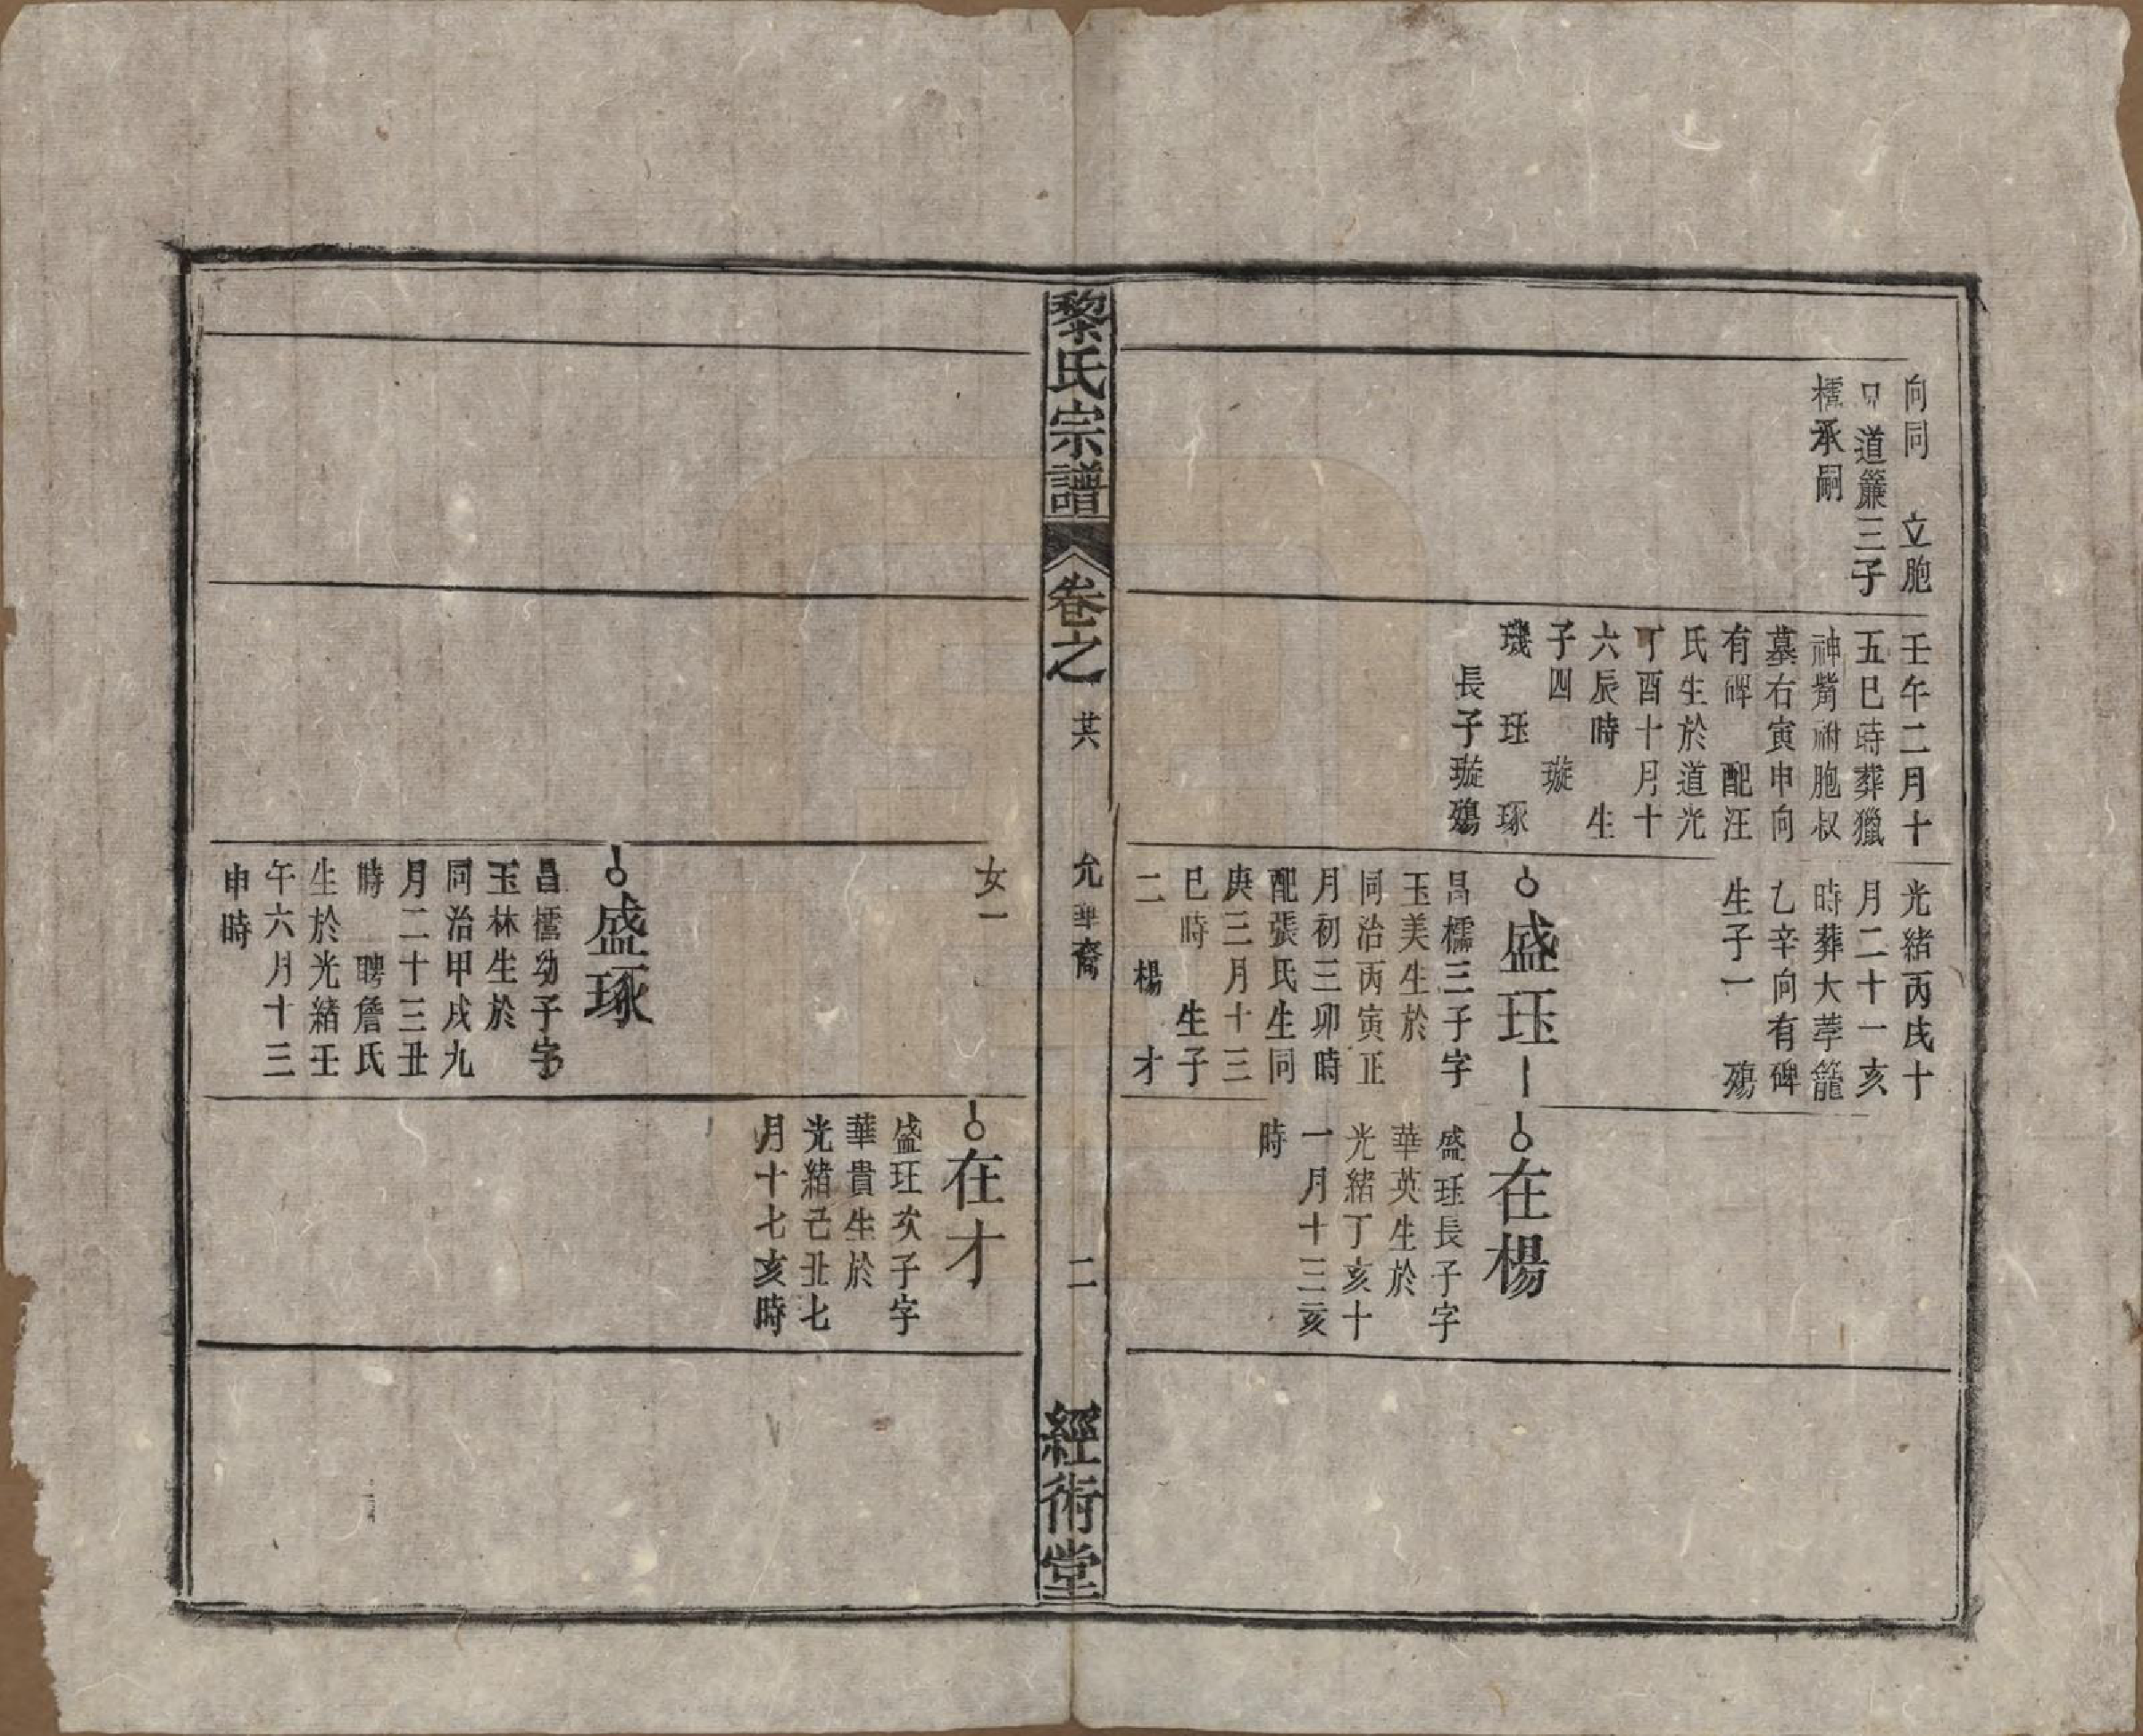 向同　立胞
道簾三子
檽承嗣
壬午二月十
五巳時葬獵
神嘴祔胞叔
墓右寅申向
有碑　配汪
氏生於道光
丁酉十月十
六辰時　生
子四　璇
璣　珏　琢
長子璇殤
光緒丙戌十
月二十一亥
時葬大荸籠
乙辛向有碑
生子一　殤
盛珏
昌檽三子字
玉美生於
同治丙寅正
月初三卯時
配張氏生同
庚三月十三
巳時　生子
二　楊　才
在楊
盛珏長子字
華英生於
光緒丁亥十
一月十三亥
時
黎氏宗譜
卷之
共
允華裔
二
經術堂
女一
在才
盛珏次子字
華貴生於
光緒己丑七
月十七亥時
盛琢
昌檽幼子字
玉林生於
同治甲戌九
月二十三丑
時　聘詹氏
生於光緒壬
午六月十三
申時